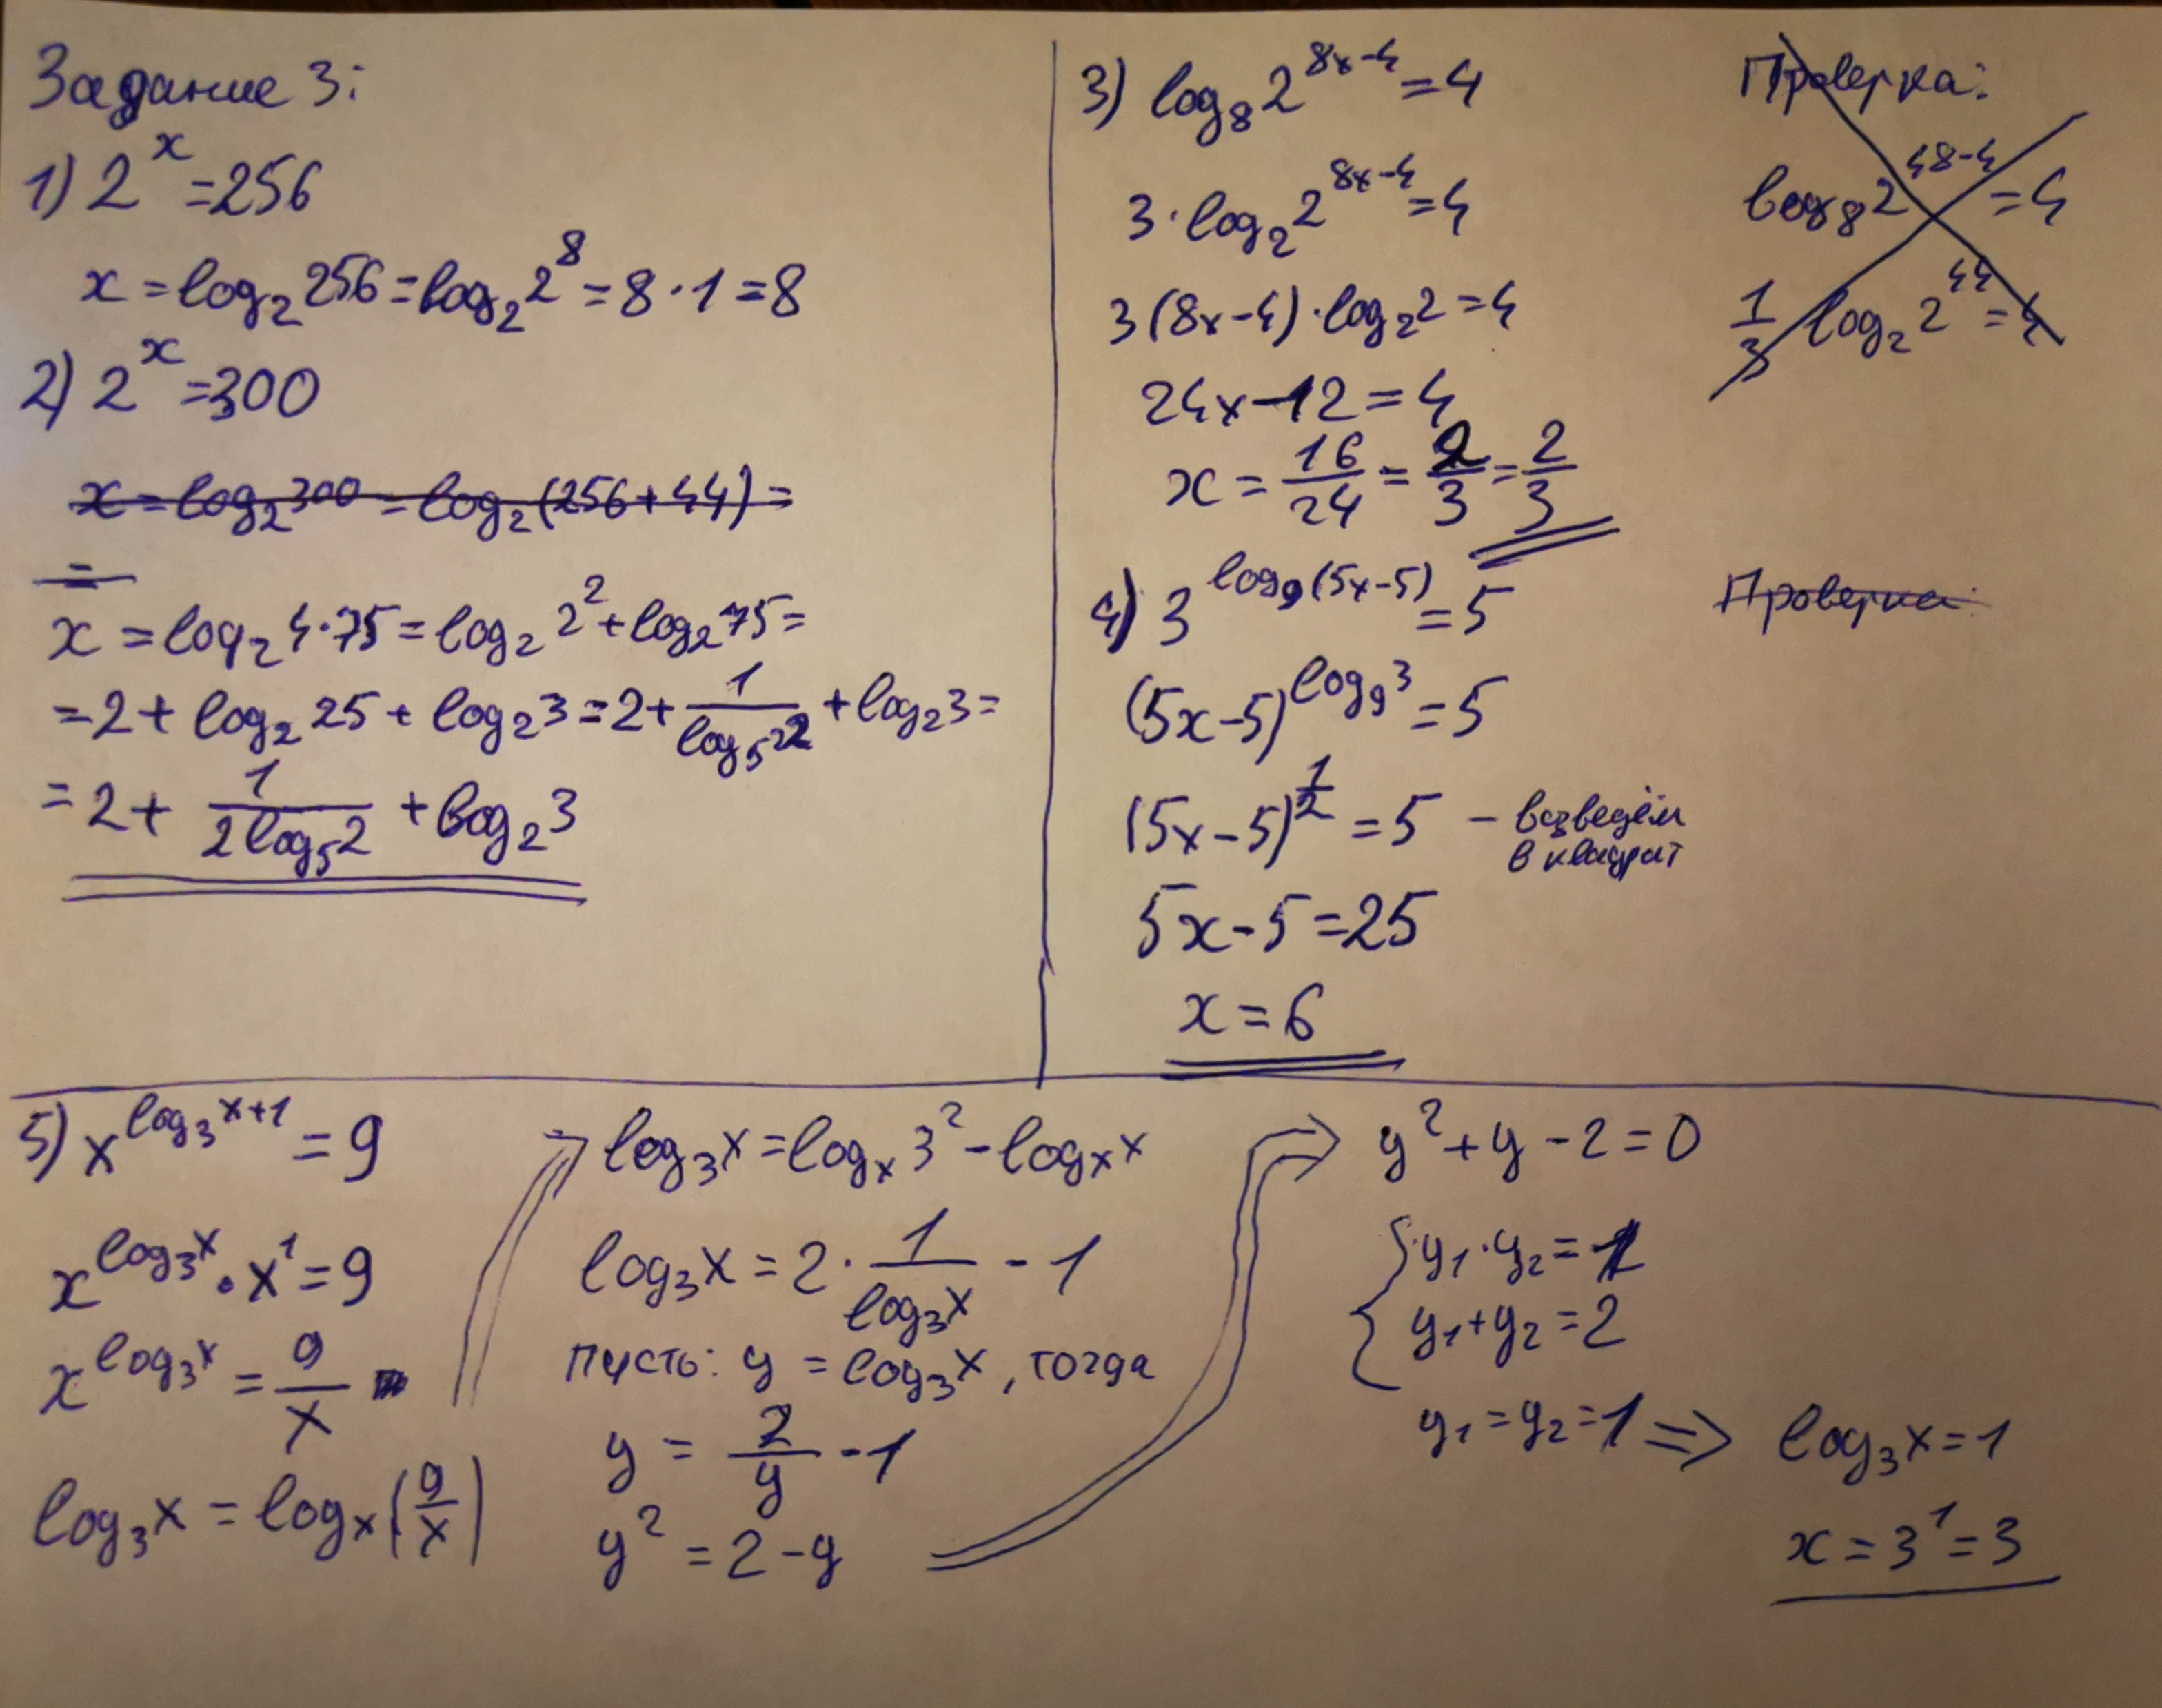 Задание 3:
1) 2^x = 256
x = log₂ 256 = log₂ 2^8 = 8 · 1 = 8
2) 2^x = 300
x = log₂ 300 = log₂ (256 + 44) =
=
x = log₂ 4·75 = log₂ 2² + log₂ 75 =
= 2 + log₂ 25 + log₂ 3 = 2 + 1/(log₅² 2) + log₂ 3 =
= 2 + 1/(2 log₅ 2) + log₂ 3
3) log₈ 2^(8x-4) = 4
3 · log₂ 2^(8x-4) = 4
3(8x-4) · log₂ 2 = 4
24x - 12 = 4
x = 16/24 = 2/3 = 2/3
Проверка:
log₈ 2^(48-4) = 4
1/3 log₂ 2^44 = 4
4) 3^(log₉(5x-5)) = 5
(5x-5)^(log₉ 3) = 5
(5x-5)^(1/2) = 5 - возведём
в квадрат
5x - 5 = 25
x = 6
Проверка
5) x^(log₃ x+1) = 9
x^(log₃ x) · x^1 = 9
x^(log₃ x) = 9/x
log₃ x = logₓ (9/x)
⇒ log₃ x = logₓ 3² - logₓ x
log₃ x = 2 · 1/(log₃ x) - 1
пусть: y = log₃ x, тогда
y = 2/y - 1
y² = 2 - y
⇒ y² + y - 2 = 0
{ y₁ · y₂ = 1
y₁ + y₂ = 2
y₁ = y₂ = 1 ⇒ log₃ x = 1
x = 3^1 = 3